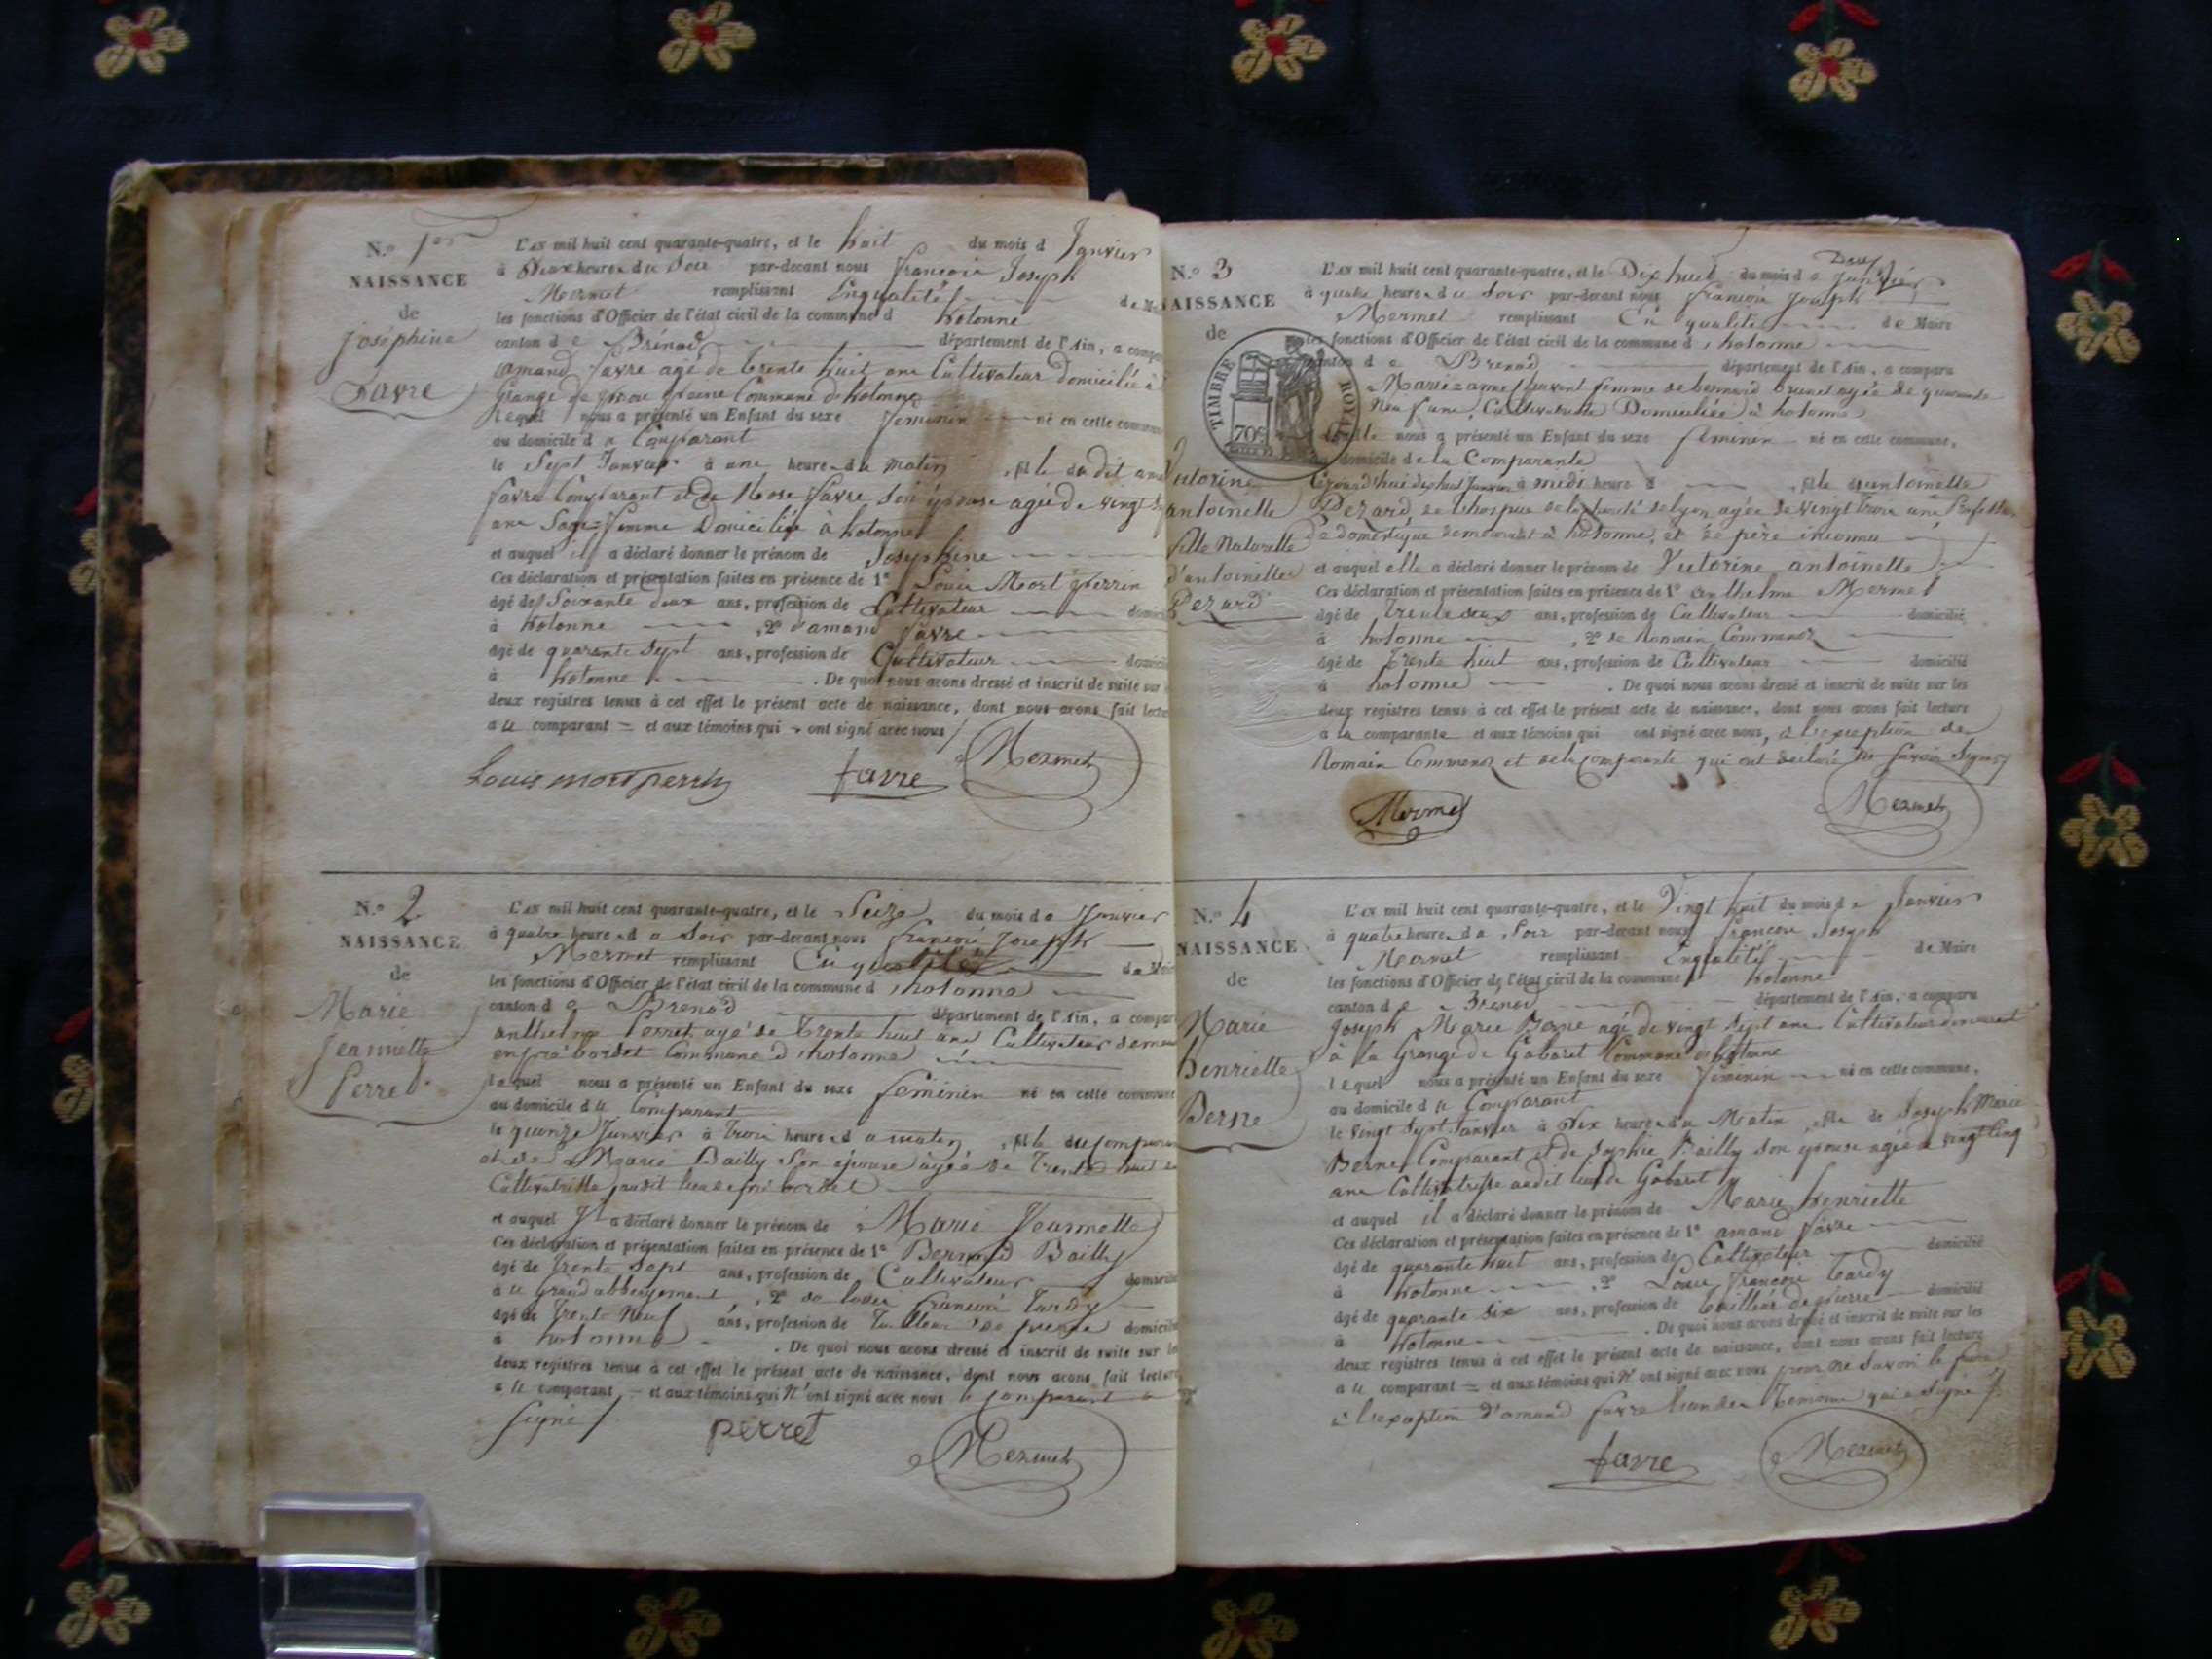 N.º 1er
NAISSANCE
de
Joséphine
Favre
L'an mil huit cent quarante-quatre, et le huit du mois d Janvier
à Deux heures du Soir par-devant nous françois Joseph
Mermet remplissant Enqualité de
les fonctions d'Officier de l'état civil de la commune d hotonne
canton d e Brénod département de l'Ain, a compa
amand favre agé de trente huit ans Cultivateur domicilié à
Grange de Commune d hotonne
lequel nous a présenté un Enfant du sexe féminin né en cette commune
au domicile d u Comparant
le Sept Janvier à une heure du matin, fille du dit
favre Comparant et de Rose favre Son épouse agée de vingt
ans Sage-femme Domiciliée à hotonne
et auquel il a déclaré donner le prénom de Joséphine
Ces déclaration et présentation faites en présence de 1º Louis Montperrin
âgé de Soixante deux ans, profession de Cultivateur
à hotonne, 2º d'amand favre
âgé de quarante Sept ans, profession de Cultivateur
à hotonne. De quoi nous avons dressé et inscrit de suite sur
deux registres tenus à cet effet le présent acte de naissance, dont nous avons fait lecture
a le comparant et aux témoins qui ont signé avec nous
Louis montperrin favre Mermet
N.º 2
NAISSANCE
de
Marie
Jeannette
Perret
L'an mil huit cent quarante-quatre, et le Seize du mois de Janvier
à quatre heures du Soir par-devant nous françois Joseph
Mermet remplissant En qualité de
les fonctions d'Officier de l'état civil de la commune d hotonne
canton d e Brenod département de l'Ain, a compar
anthelme Perret agé de trente huit ans Cultivateur
Commune d hotonne
lequel nous a présenté un Enfant du sexe féminin né en cette commune
au domicile d u Comparant
le quinze Janvier à trois heures du matin, fille du comparant
et de Marie Bailly Son épouse agée de trente huit
Cultivatrice
et auquel il a déclaré donner le prénom de Marie Jeannette
Ces déclaration et présentation faites en présence de 1º Bernard Bailly
âgé de trente Sept ans, profession de Cultivateur
à u Grand abbergement, 2º de Louis françois tardy
âgé de trente Neuf ans, profession de tailleur de pierre
à hotonne. De quoi nous avons dressé et inscrit de suite sur
deux registres tenus à cet effet le présent acte de naissance, dont nous avons fait lecture
a le comparant et aux témoins qui n'ont signé avec nous le comparant a
signé perret
Mermet
N.º 3
NAISSANCE
de
TIMBRE ROYAL
70c
Victorine
antoinette
fille Naturelle
d'antoinette
Dezard
L'an mil huit cent quarante-quatre, et le Dix huit du mois d e Janvier
à quatre heures du Soir par-devant nous françois Joseph
Mermet remplissant En qualité de Maire
les fonctions d'Officier de l'état civil de la commune d hotonne
canton d e Brenod département de l'Ain, a comparu
femme de bernard brunet agée de quarante
Neuf ans, Cultivatrice Domiciliée à hotonne
laquelle nous a présenté un Enfant du sexe féminin né en cette commune,
au domicile de la Comparante
à midi heure, fille d'antoinette
Dezard de l'hospice de la Charité de lyon, agée de vingt trois ans Profession
de domestique demeurant à hotonne, et de père inconnu
et auquel elle a déclaré donner le prénom de Victorine antoinette
Ces déclaration et présentation faites en présence de 1º anthelme Mermet
âgé de trente deux ans, profession de Cultivateur domicilié
à hotonne, 2º de Romain
âgé de trente huit ans, profession de Cultivateur domicilié
à hotonne. De quoi nous avons dressé et inscrit de suite sur les
deux registres tenus à cet effet le présent acte de naissance, dont nous avons fait lecture
à la comparante et aux témoins qui ont signé avec nous, à l'exception de
Romain et de la comparante qui ont déclaré ne savoir signer
Mermet Mermet
N.º 4
NAISSANCE
de
Marie
henriette
Berne
L'an mil huit cent quarante-quatre, et le Vingt huit du mois d e Janvier
à quatre heures du Soir par-devant nous françois Joseph
Mermet remplissant Enqualité de Maire
les fonctions d'Officier de l'état civil de la commune d hotonne
canton d e Brenod département de l'Ain, a comparu
Joseph Marie Berne agé de vingt Sept ans Cultivateur demeurant
à la Grange de Gabaret Commune de hotonne
lequel nous a présenté un Enfant du sexe féminin né en cette commune,
au domicile d u Comparant
le vingt Sept Janvier à Dix heures du Matin, fille de Joseph Marie
Berne Comparant et de Sophie Bailly Son épouse agée de vingt cinq
ans Cultivatrice audit lieu de Gabaret
et auquel il a déclaré donner le prénom de Marie henriette
Ces déclaration et présentation faites en présence de 1º amand favre
âgé de quarante huit ans, profession de Cultivateur domicilié
à hotonne, 2º Louis françois tardy
âgé de quarante Six ans, profession de tailleur de pierre domicilié
à hotonne. De quoi nous avons dressé et inscrit de suite sur les
deux registres tenus à cet effet le présent acte de naissance, dont nous avons fait lecture
a le comparant et aux témoins qui n'ont signé avec nous pour ne savoir le faire
à l'exception d'amand favre l'un des témoins qui a signé
favre Mermet